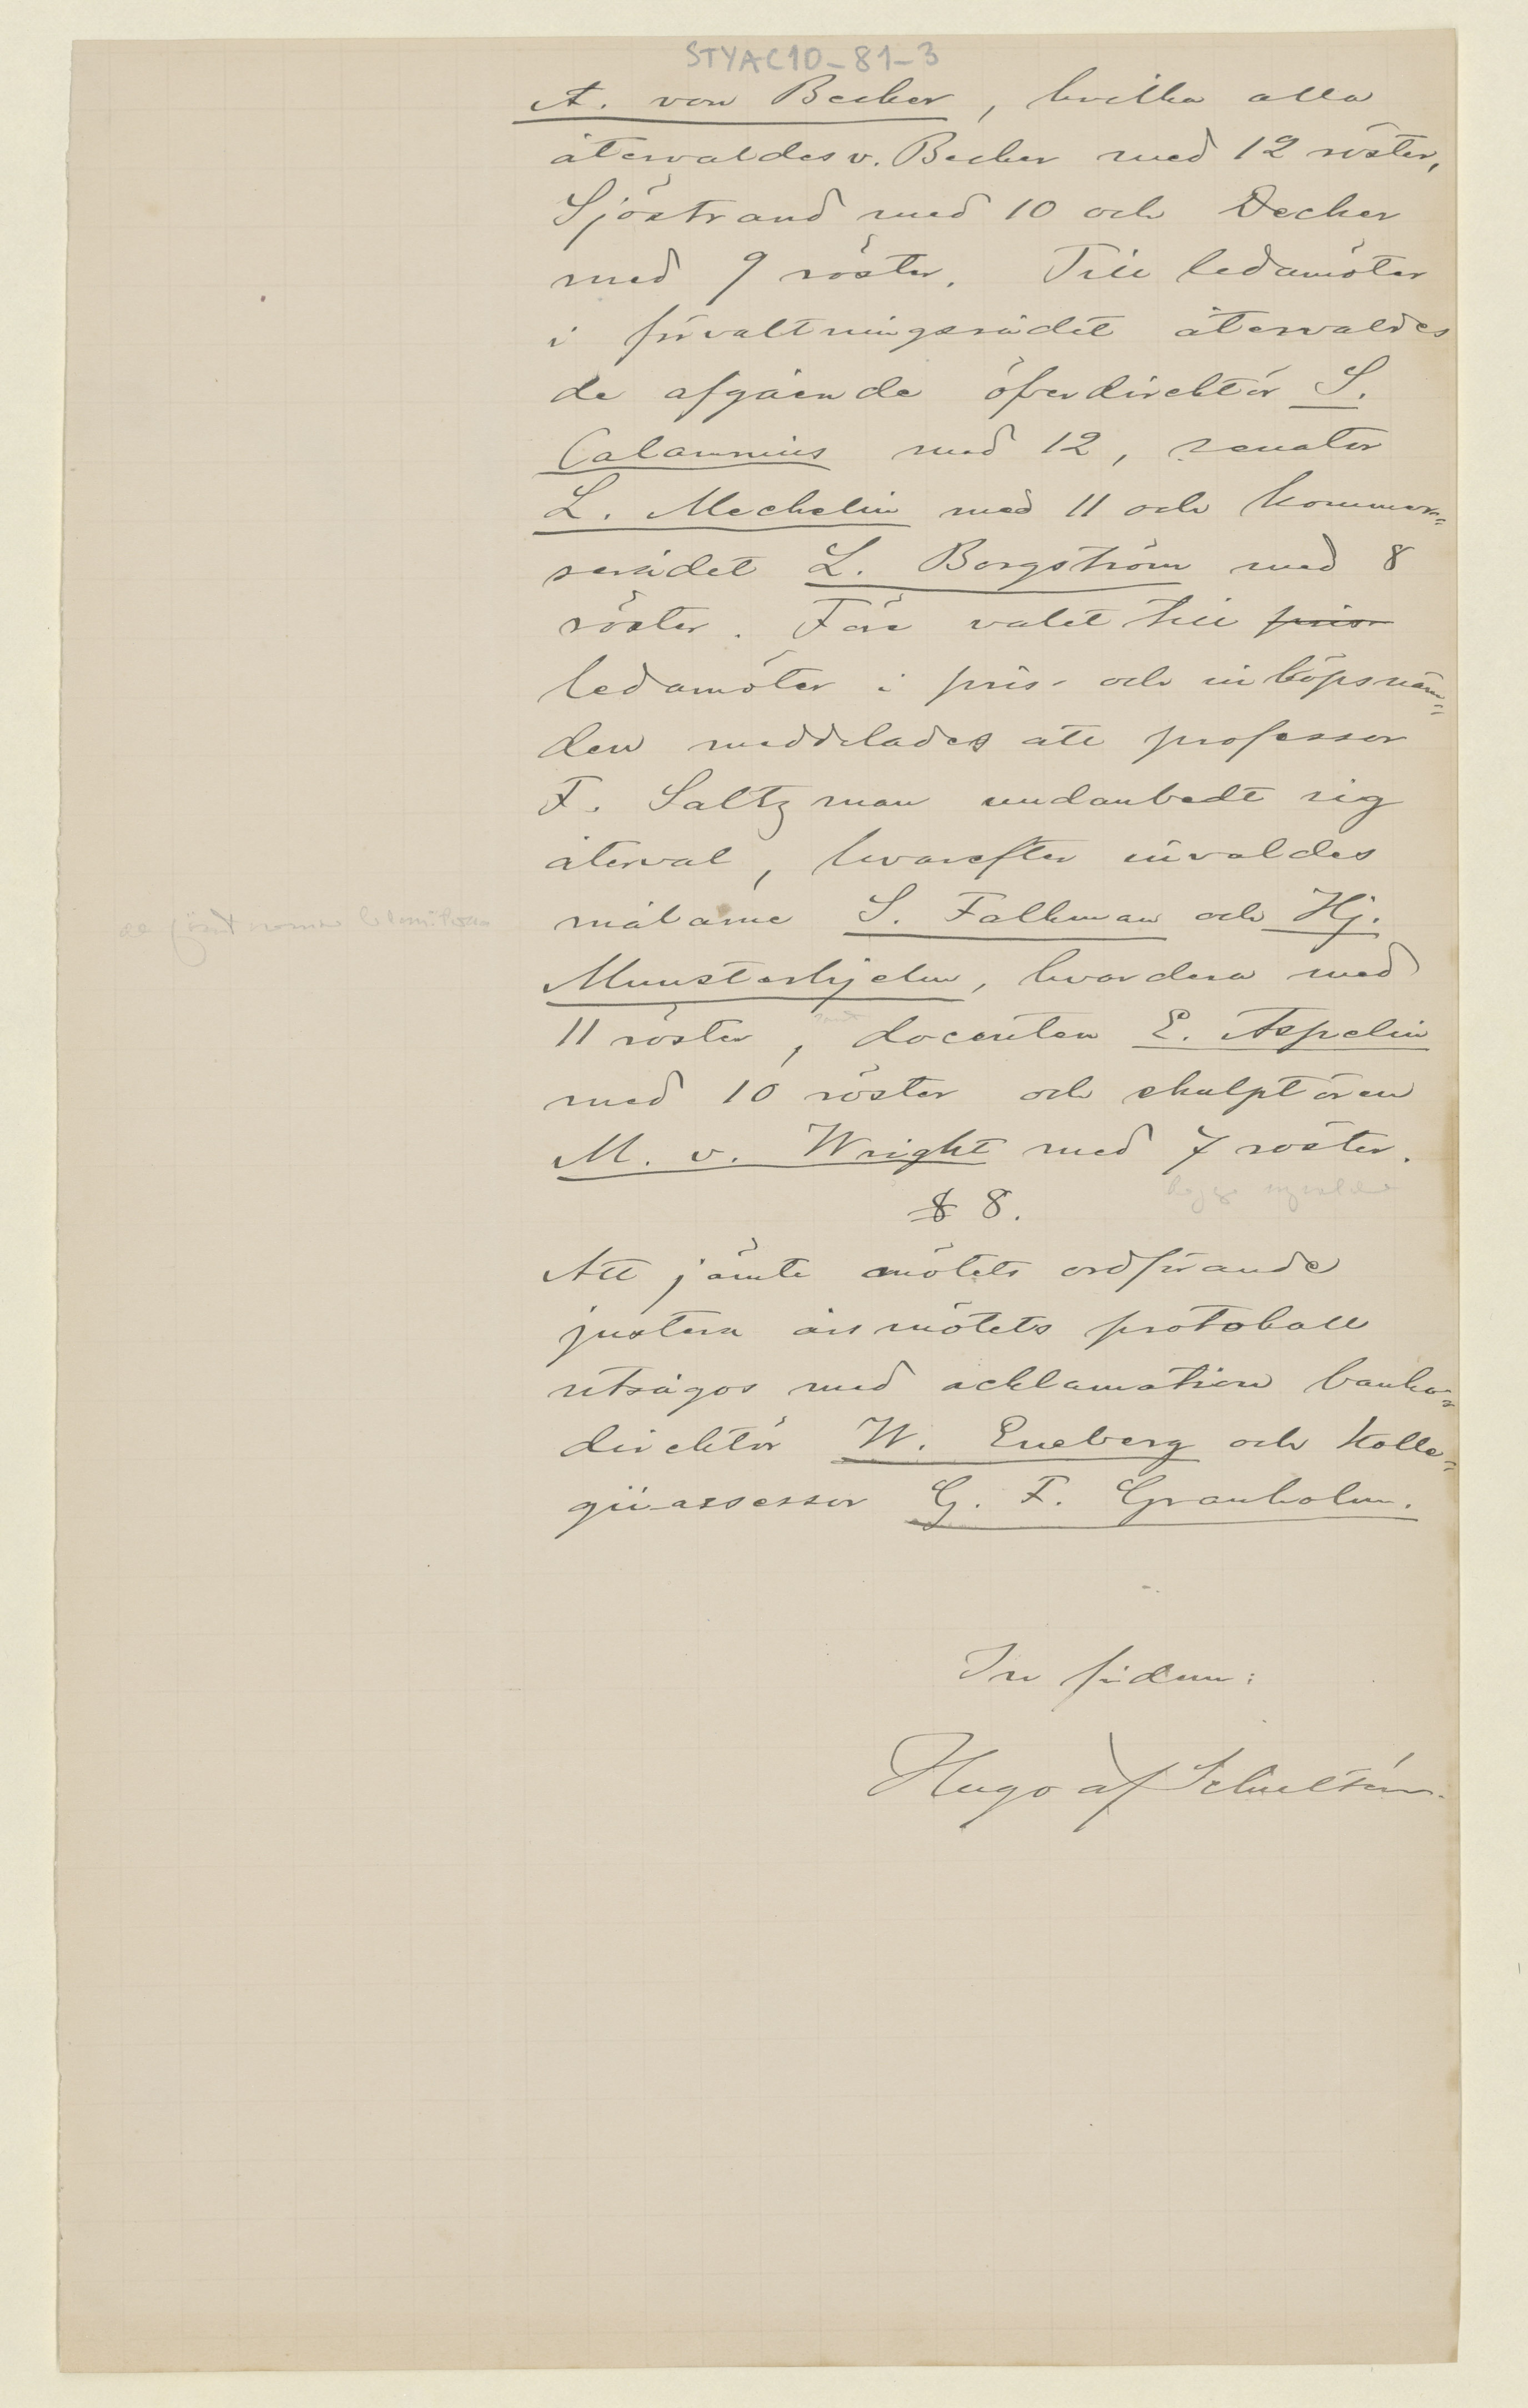 STYAC10-81-3
A. von Becker, hvilka alla
återvaldes v. Becker med 12 röster,
Sjöstrand med 10 och Decker
med 9 röster. Till ledamöter
i förvaltningsrådet återvaldes
de afgående öfverdirektör S.
Calamnius med 12, senator
L. Mechelin med 11 och kommer=
serådet L. Borgström med 8
röster. Före valet till pris
ledamöter i pris- och inköpsnäm=
den meddelades att professor
F. Saltzman undanbedt sig
återval, hvarefter invaldes
målarne S. Falkman och Hj.
Munsterhjelm, hvardera med
11 röster, docenten E. Aspelin
med 10 röster och skulptören
M. v. Wright med 7 röster.
§ 8.
Att jämte mötets ordförande
justera årsmötets protokoll
utsågos med acklamation banko=
direktör W. Eneberg och Kolle=
giiassessor G. F. Granholm.
In fidem:
Hugo af Schultén.